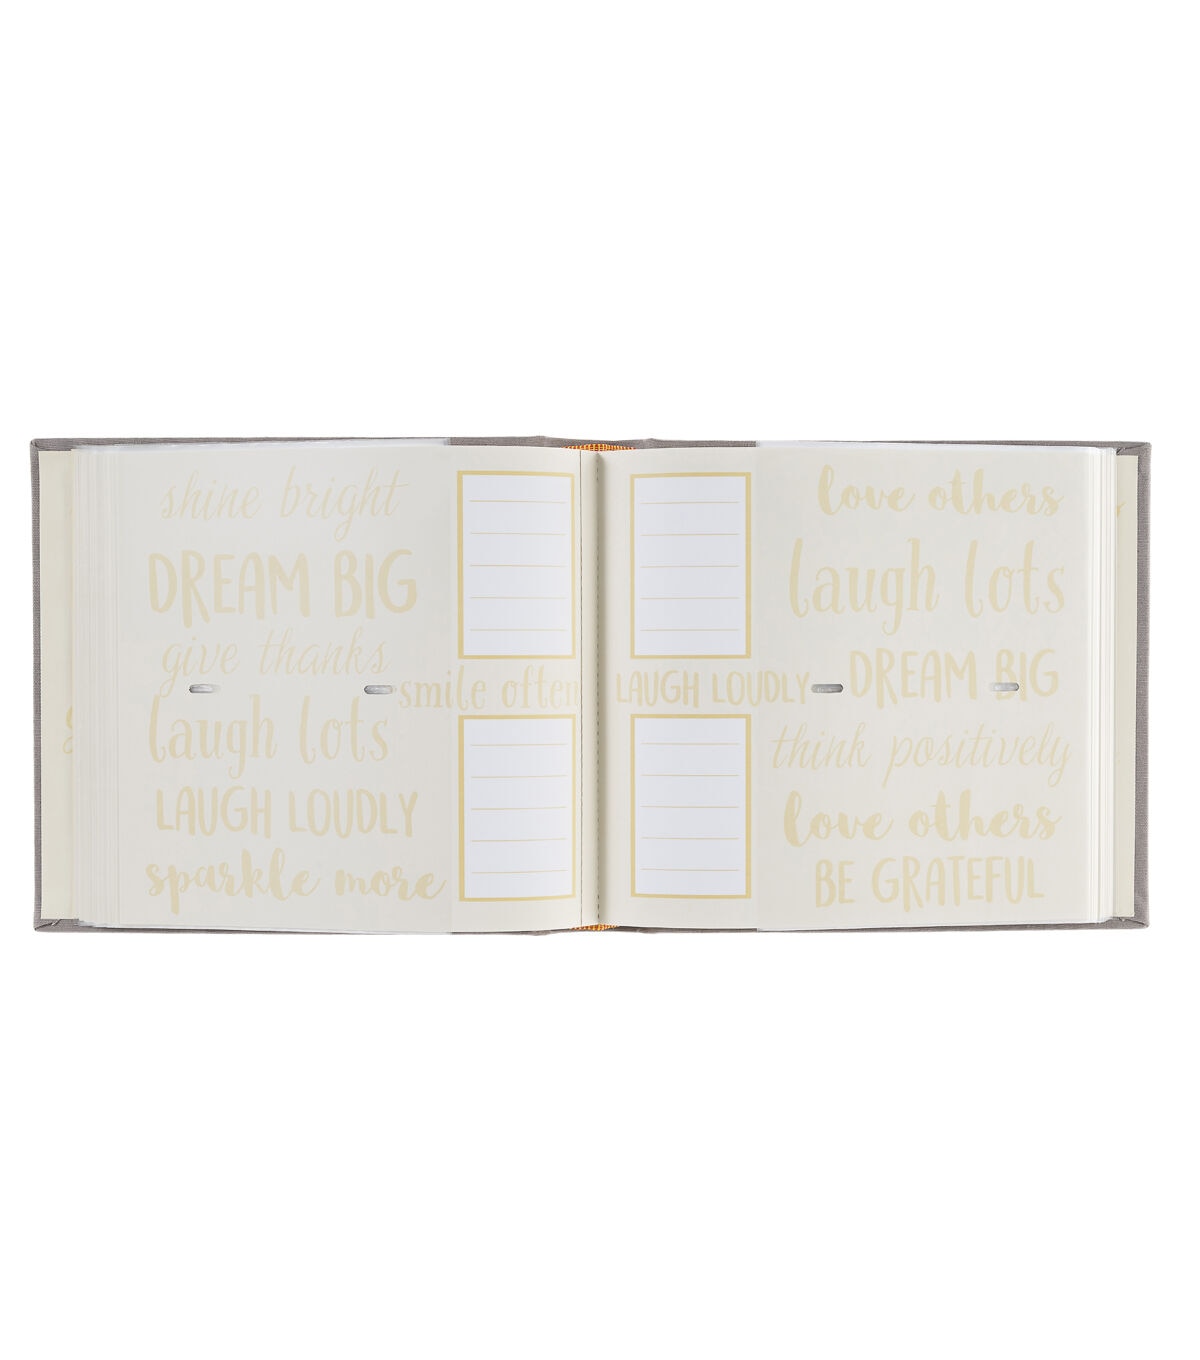 shine bright
DREAM BIG
give thanks
smile often
laugh lots
LAUGH LOUDLY
sparkle more
love others
laugh lots
DREAM BIG
LAUGH LOUDLY
think positively
love others
BE GRATEFUL